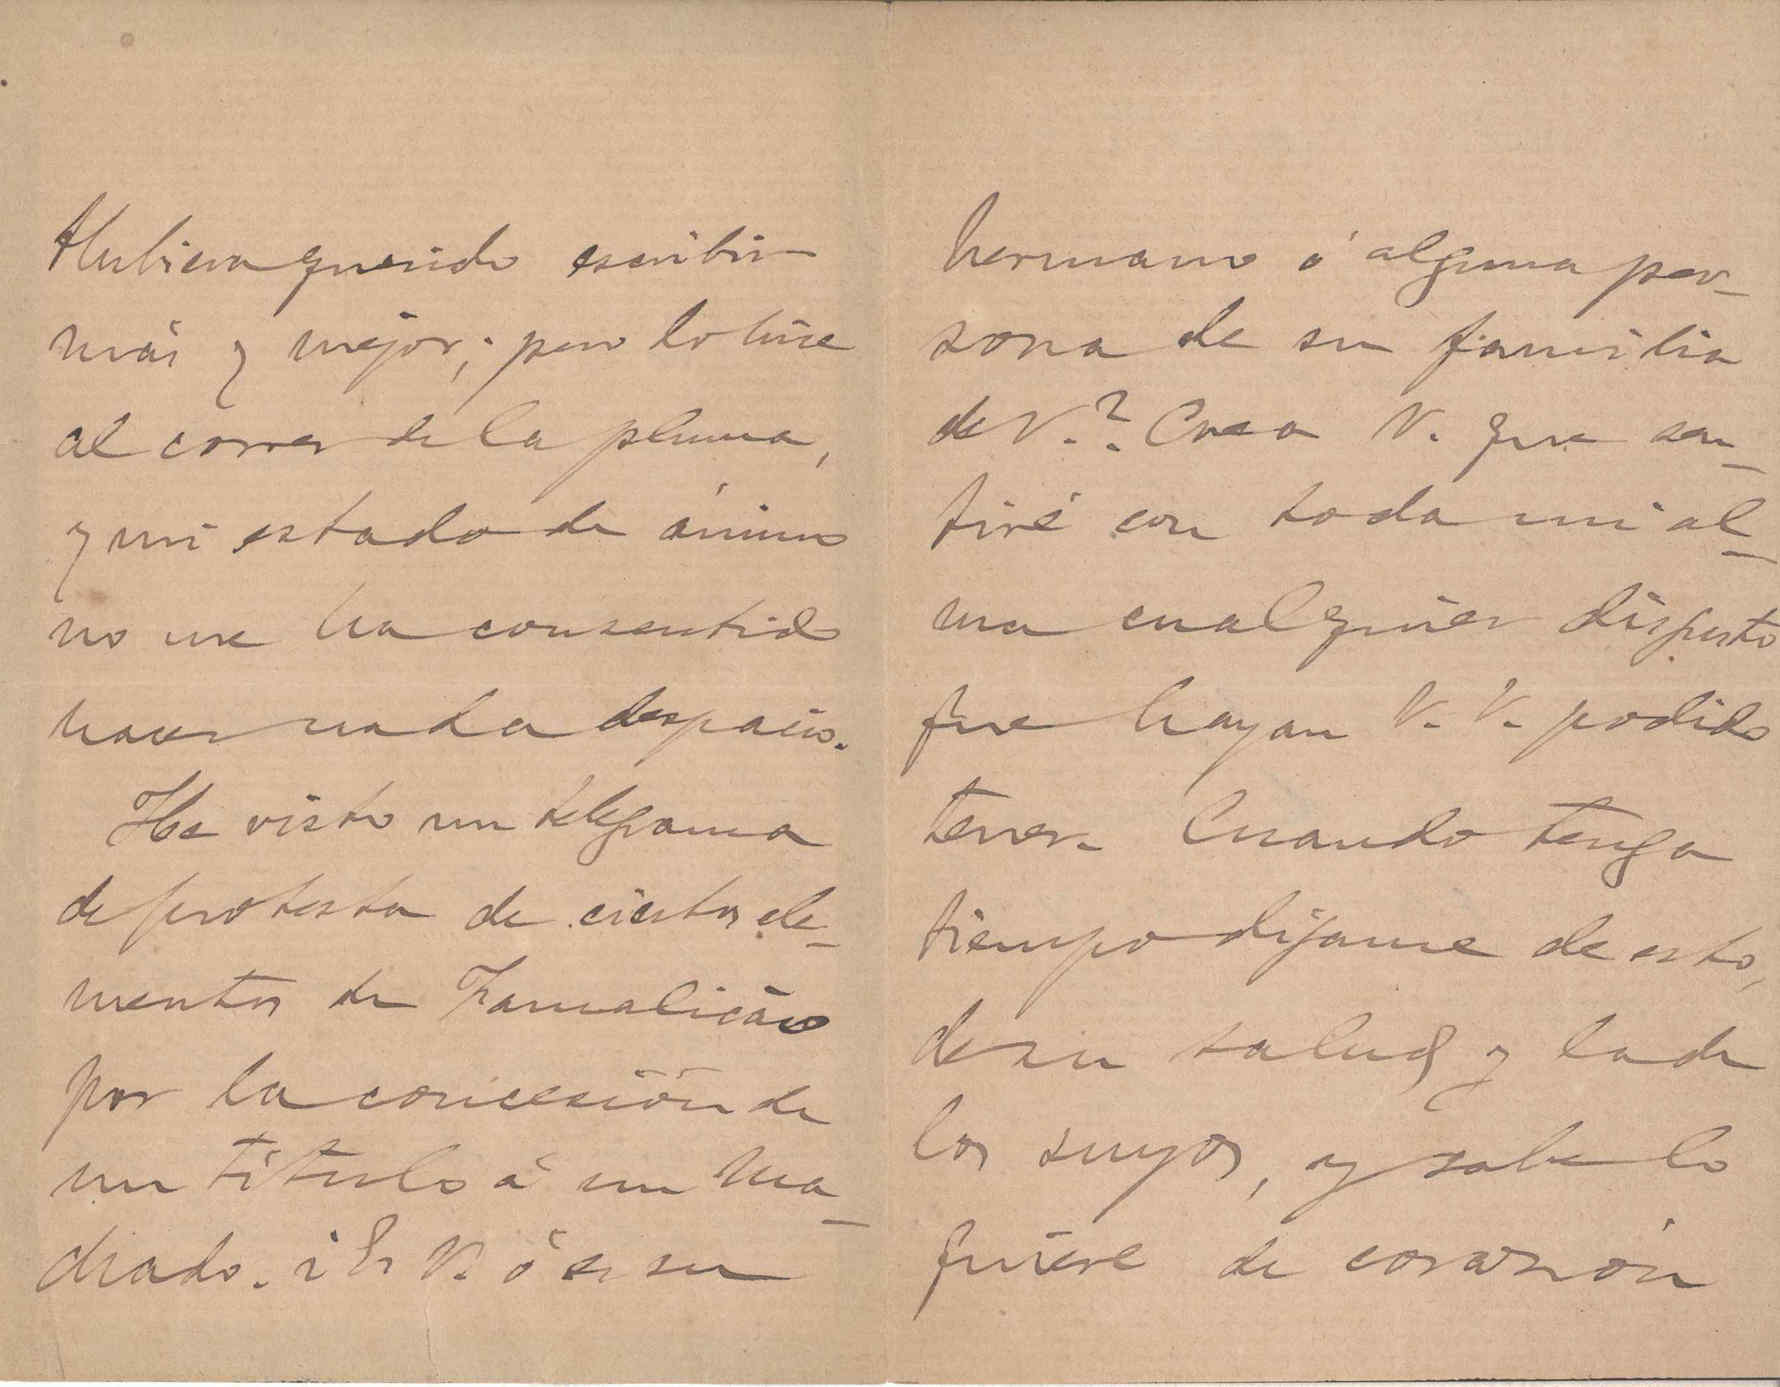 Hubiera querido escribir
más y mejor; pero lo hice
al correr de la pluma,
y mi estado de ánimo
no me ha consentido
hacer nada despacio.
He visto un telegrama
de protesta de ciertos ele-
mentos de Famalicão
por la concesión de
un título á un Ma-
chado. ¿Es V. ó es su
hermano ó alguna per-
sona de su familia
de V.? Crea V. que sen-
tiré con toda mi al-
ma cualquier disgusto
que hayan V. V. podido
tener. Cuando tenga
tiempo dígame de esto,
de su salud y la de
los suyos, y sabe lo
quiere de corazón